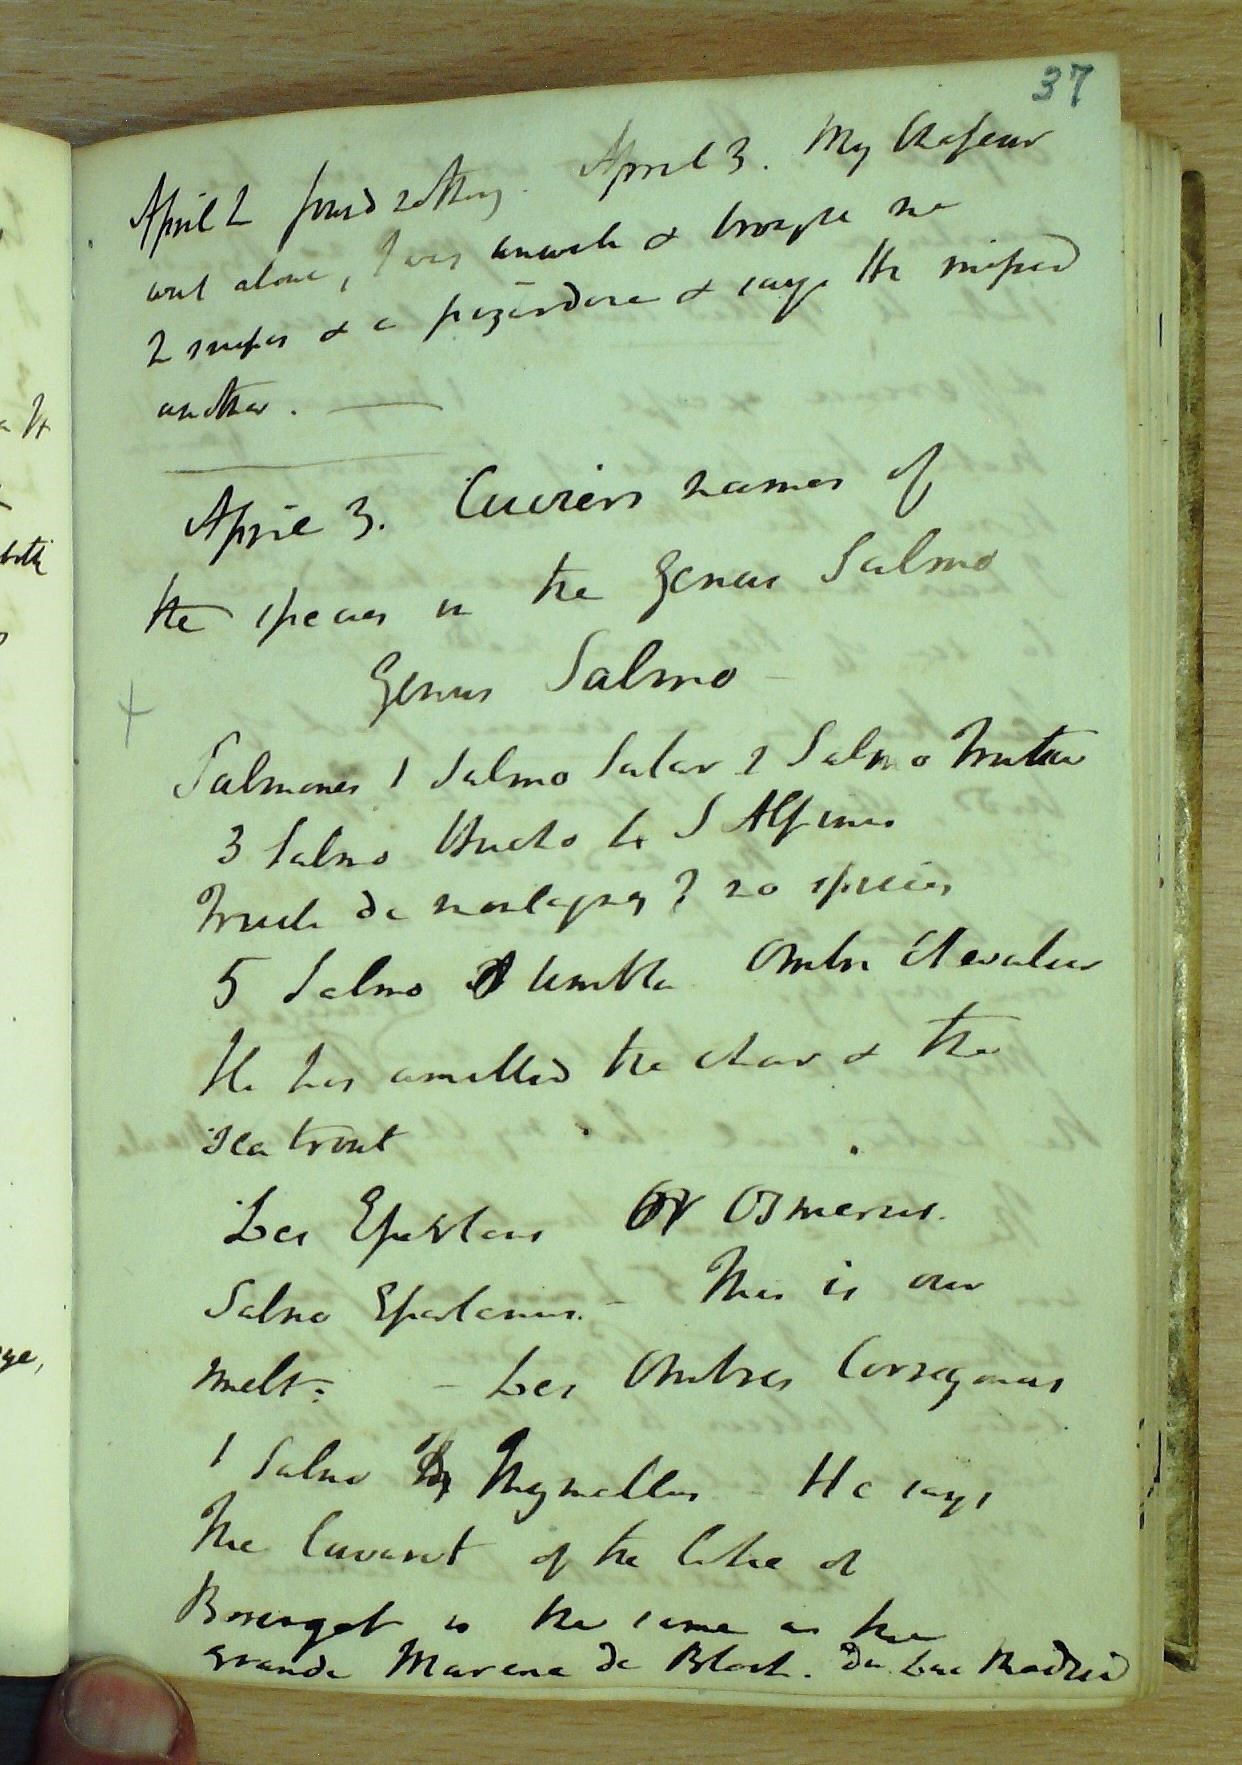 37
April 2 found nothing. April 3. My Chasseur
went alone, I was unwell & brought me
2 snipes & a & says He missed
another.
April 3. Cuviers names of
the species in the Genus Salmo
Genus Salmo
Salmones 1 Salmo Salar 2 Salmo Trutta
3 Salmo Hucho 4 S Alpinus
Truite de montagnes? no species
5 Salmo Umbla Ombre Chevalier
He has omitted the char & the
sea trout
Les Eperlans or Osmerus.
Salmo Eperlanus. - This is our
smelt. - Les Ombres Corregonus
1 Salmo Thymallus - He says
The Lavaret of the Lake of
Bourget is the same as the
grande Marene de Bloch. du Lac
both